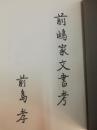 前嶋家文書考
前島孝